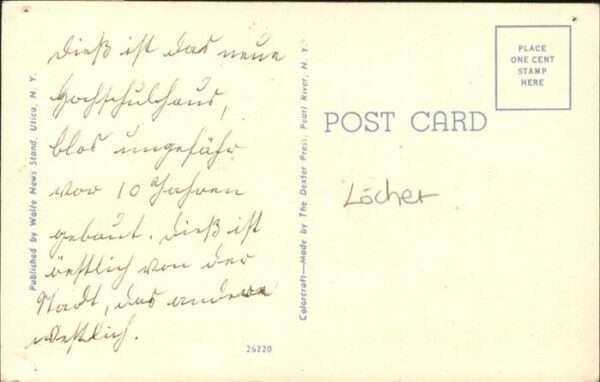 Dieß ist das neue
Hochschulhaus,
blos ungefähr
vor 10 Jahren
gebaut. Dieß ist
oestlich von der
Stadt, das andere
westlich.
Published by Wolfe News Stand, Utica, N. Y.
Colorcraft—Made by The Dexter Press, Pearl River, N. Y.
26220
POST CARD
PLACE
ONE CENT
STAMP
HERE
Löcher